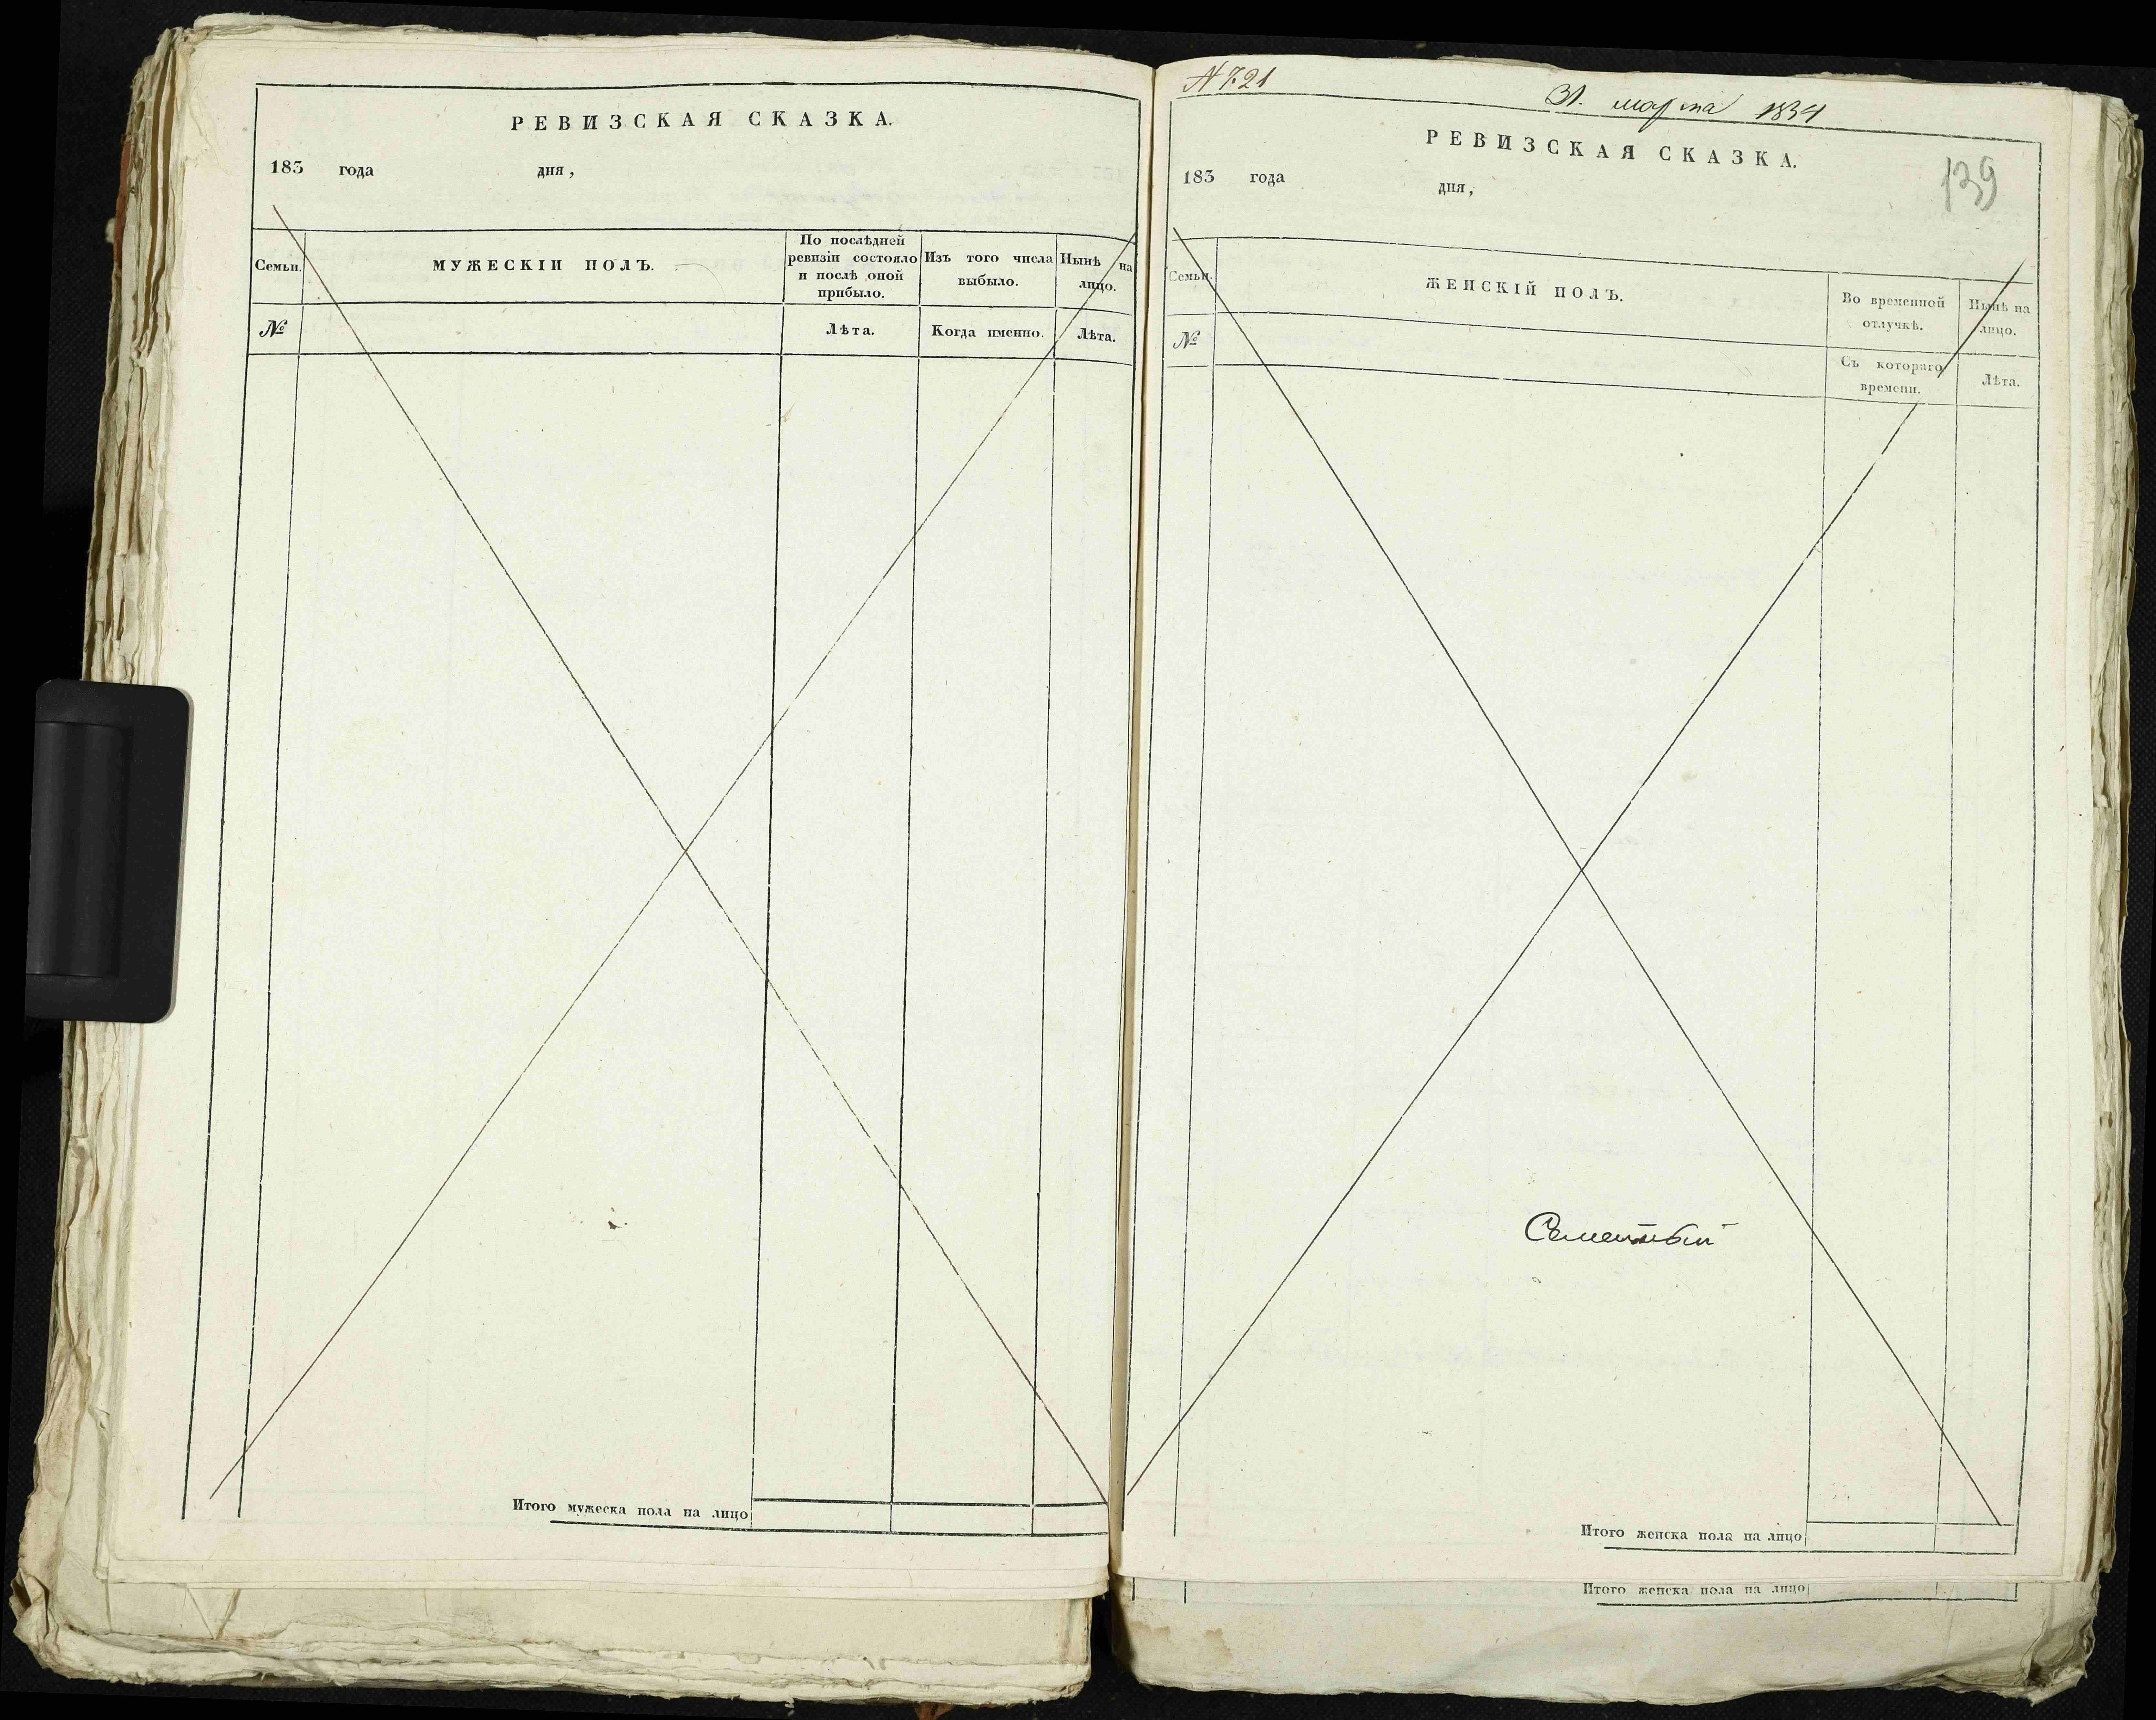 РЕВИЗСКАЯ СКАЗКА.
183 года дня,
Семьи.
МУЖЕСКІЙ ПОЛЪ.
По послѣдней
ревизіи состояло
и послѣ оной
прибыло.
Изъ того числа
выбыло.
Нынѣ на
лицо.
№
Лѣта.
Когда именно.
Лѣта.
Итого мужеска пола на лицо
N 721
31. марта 1834
РЕВИЗСКАЯ СКАЗКА.
139
183 года дня,
Семьи.
ЖЕНСКІЙ ПОЛЪ.
Во временной
отлучкѣ.
Нынѣ на
лицо.
№
Съ котораго
времени.
Лѣта.
Итого женска пола на лицо
Итого женска пола на лицо